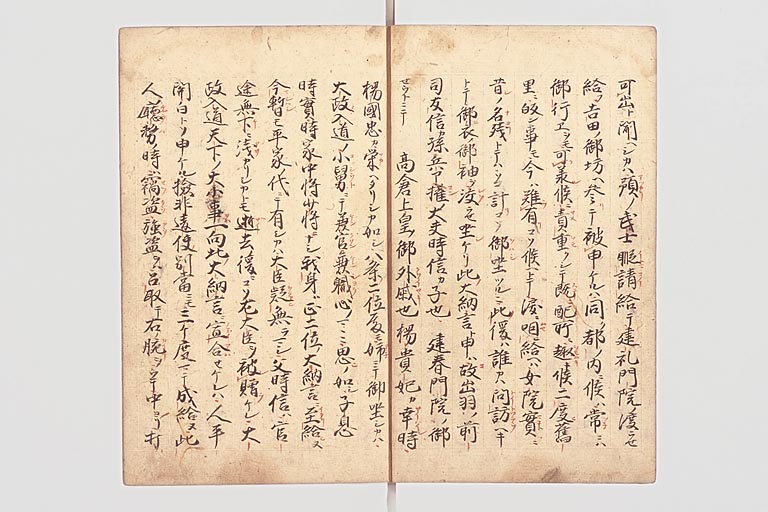 可出ト聞ヘシカハ預ノ武士ニ請給テ建礼門院ノ渡セ
給フ吉田御坊ヘ参テ被申ケルハ同シ都ノ内ニ候ヘハ常ニハ
御行エヲモ可承候ニ責重フシテ既ニ配所ニ趣候二度舊
里ニ皈ン事モ今ハ難有コソ候ヘトテ涙ニ咽給ヘハ女院實ニ
昔ノ名残トテハソコ計コソ御坐ツルニ此後ハ誰カハ問訪ヘキ
トテ御衣ノ御袖ヲ絞セ坐ケリ此大納言ト申ハ故出羽ノ前
司友信孫兵卩權大夫時信カ子也 建春門院ノ御
セウトニテ 高倉上皇ノ御外戚也楊貴妃カ幸時
楊國忠カ栄ヘタリシカ如シ八条二位殿モ姉ニテ御坐シカハ
大政入道ノ小舅ニテ兼官兼職心ノマヽニ思ノ如シ子息
時實時家中将少将ニナシ我身ハ正二位ノ大納言ニ至給ヌ
今暫モ平家ノ代ニテ有シカハ大臣疑無ラマシ父時信ハ官
途無下ニ浅カリシカトモ逝去後ニコソ左大臣ヲ被贈ケレ大
政入道天下ノ大小事一向此大納言ニ宣合セケレハ人平
関白トソ申ケル撿非違使別當ニモ三ケ度マテ成給ヌ此
人聴務ノ時ハ竊盗強盗ヲハ召取テ右ノ腕ヲ中ヨリ打